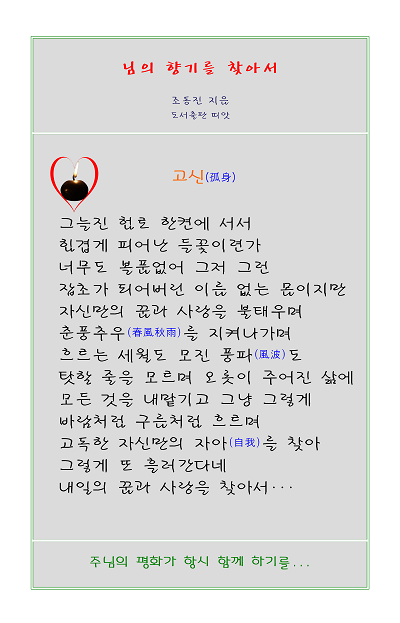 님의 향기를 찾아서
조동진 지음
도서출판 띠앗
고신(孤身)
그늘진 험로 한켠에 서서
힘겹게 피어난 들꽃이련가
너무도 볼품없어 그저 그런
잡초가 되어버린 이름 없는 몸이지만
자신만의 꿈과 사랑을 불태우며
춘풍추우(春風秋雨)를 지켜나가며
흐르는 세월도 모진 풍파(風波)도
탓할 줄을 모르며 오롯이 주어진 삶에
모든 것을 내맡기고 그냥 그렇게
바람처럼 구름처럼 흐르며
고독한 자신만의 자아(自我)를 찾아
그렇게 또 흘러간다네
내일의 꿈과 사랑을 찾아서···
주님의 평화가 항시 함께 하기를...